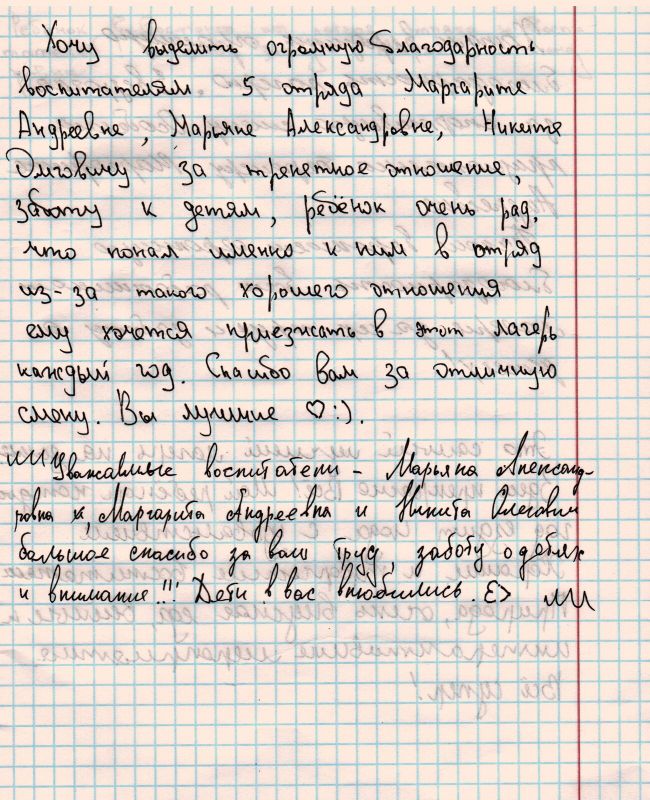 Хочу выделить огромную благодарность
воспитателям 5 отряда Маргарите
Андреевне, Марьяне Александровне, Никите
Олеговичу за трепетное отношение,
заботу к детям, ребёнок очень рад,
что попал именно к ним в отряд
из-за такого хорошего отношения
ему хочется приезжать в этот лагерь
каждый год. Спасибо вам за отличную
смену. Вы лучшие ♡:).
Уважаемые воспитатели - Марьяна Александ-
ровна, Маргарита Андреевна и Никита Олегович
большое спасибо за ваш труд, заботу о детях
и внимание!!! Дети в вас влюбились. Ɛ>